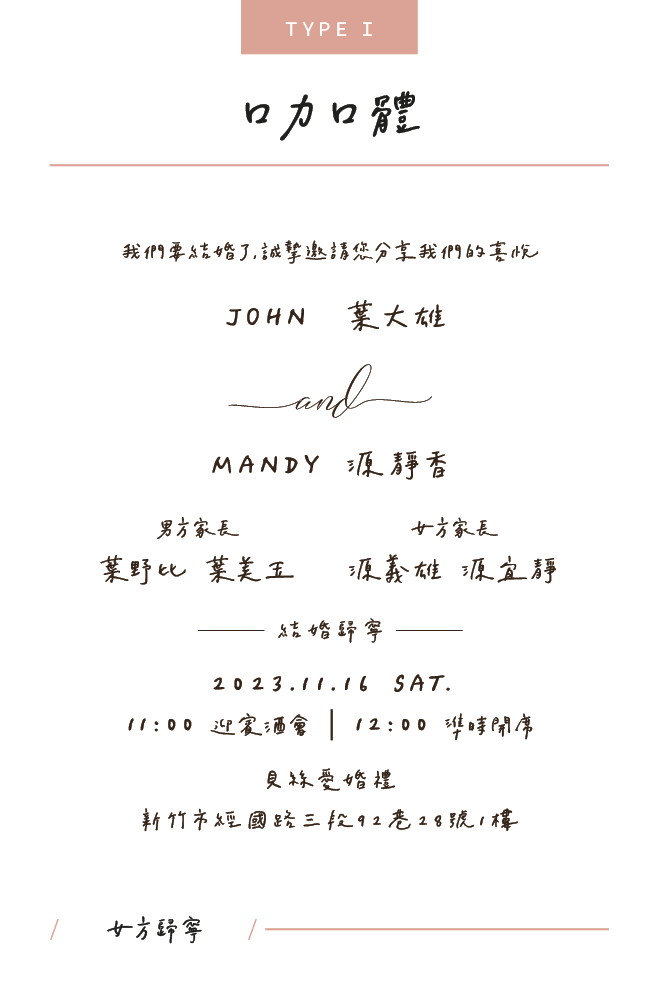 TYPE I
口力口體
我們要結婚了,誠摯邀請您分享我們的喜悅
JOHN 葉大雄
and
MANDY 源靜香
男方家長 女方家長
葉野比 葉美玉 源義雄 源宜靜
結婚歸寧
2023.11.16 SAT.
11:00 迎賓酒會 | 12:00 準時開席
貝絲愛婚禮
新竹市經國路三段92巷28號1樓
/ 女方歸寧 /